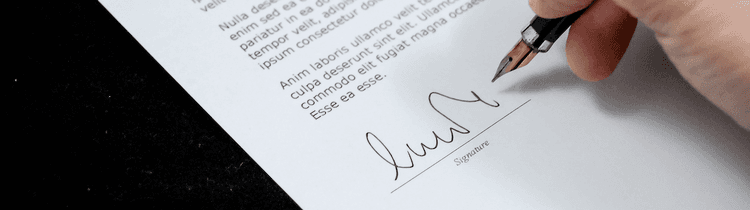 velit
Nulla dese
enim sed ea
pariatur in ea do
tempor velit, adipis
ipsum consectetur dolor
Anim laboris ullamco velit te
culpa deserunt sint elit. Ullamc
commodo elit fugiat magna occae
Esse ea esse.
Signature